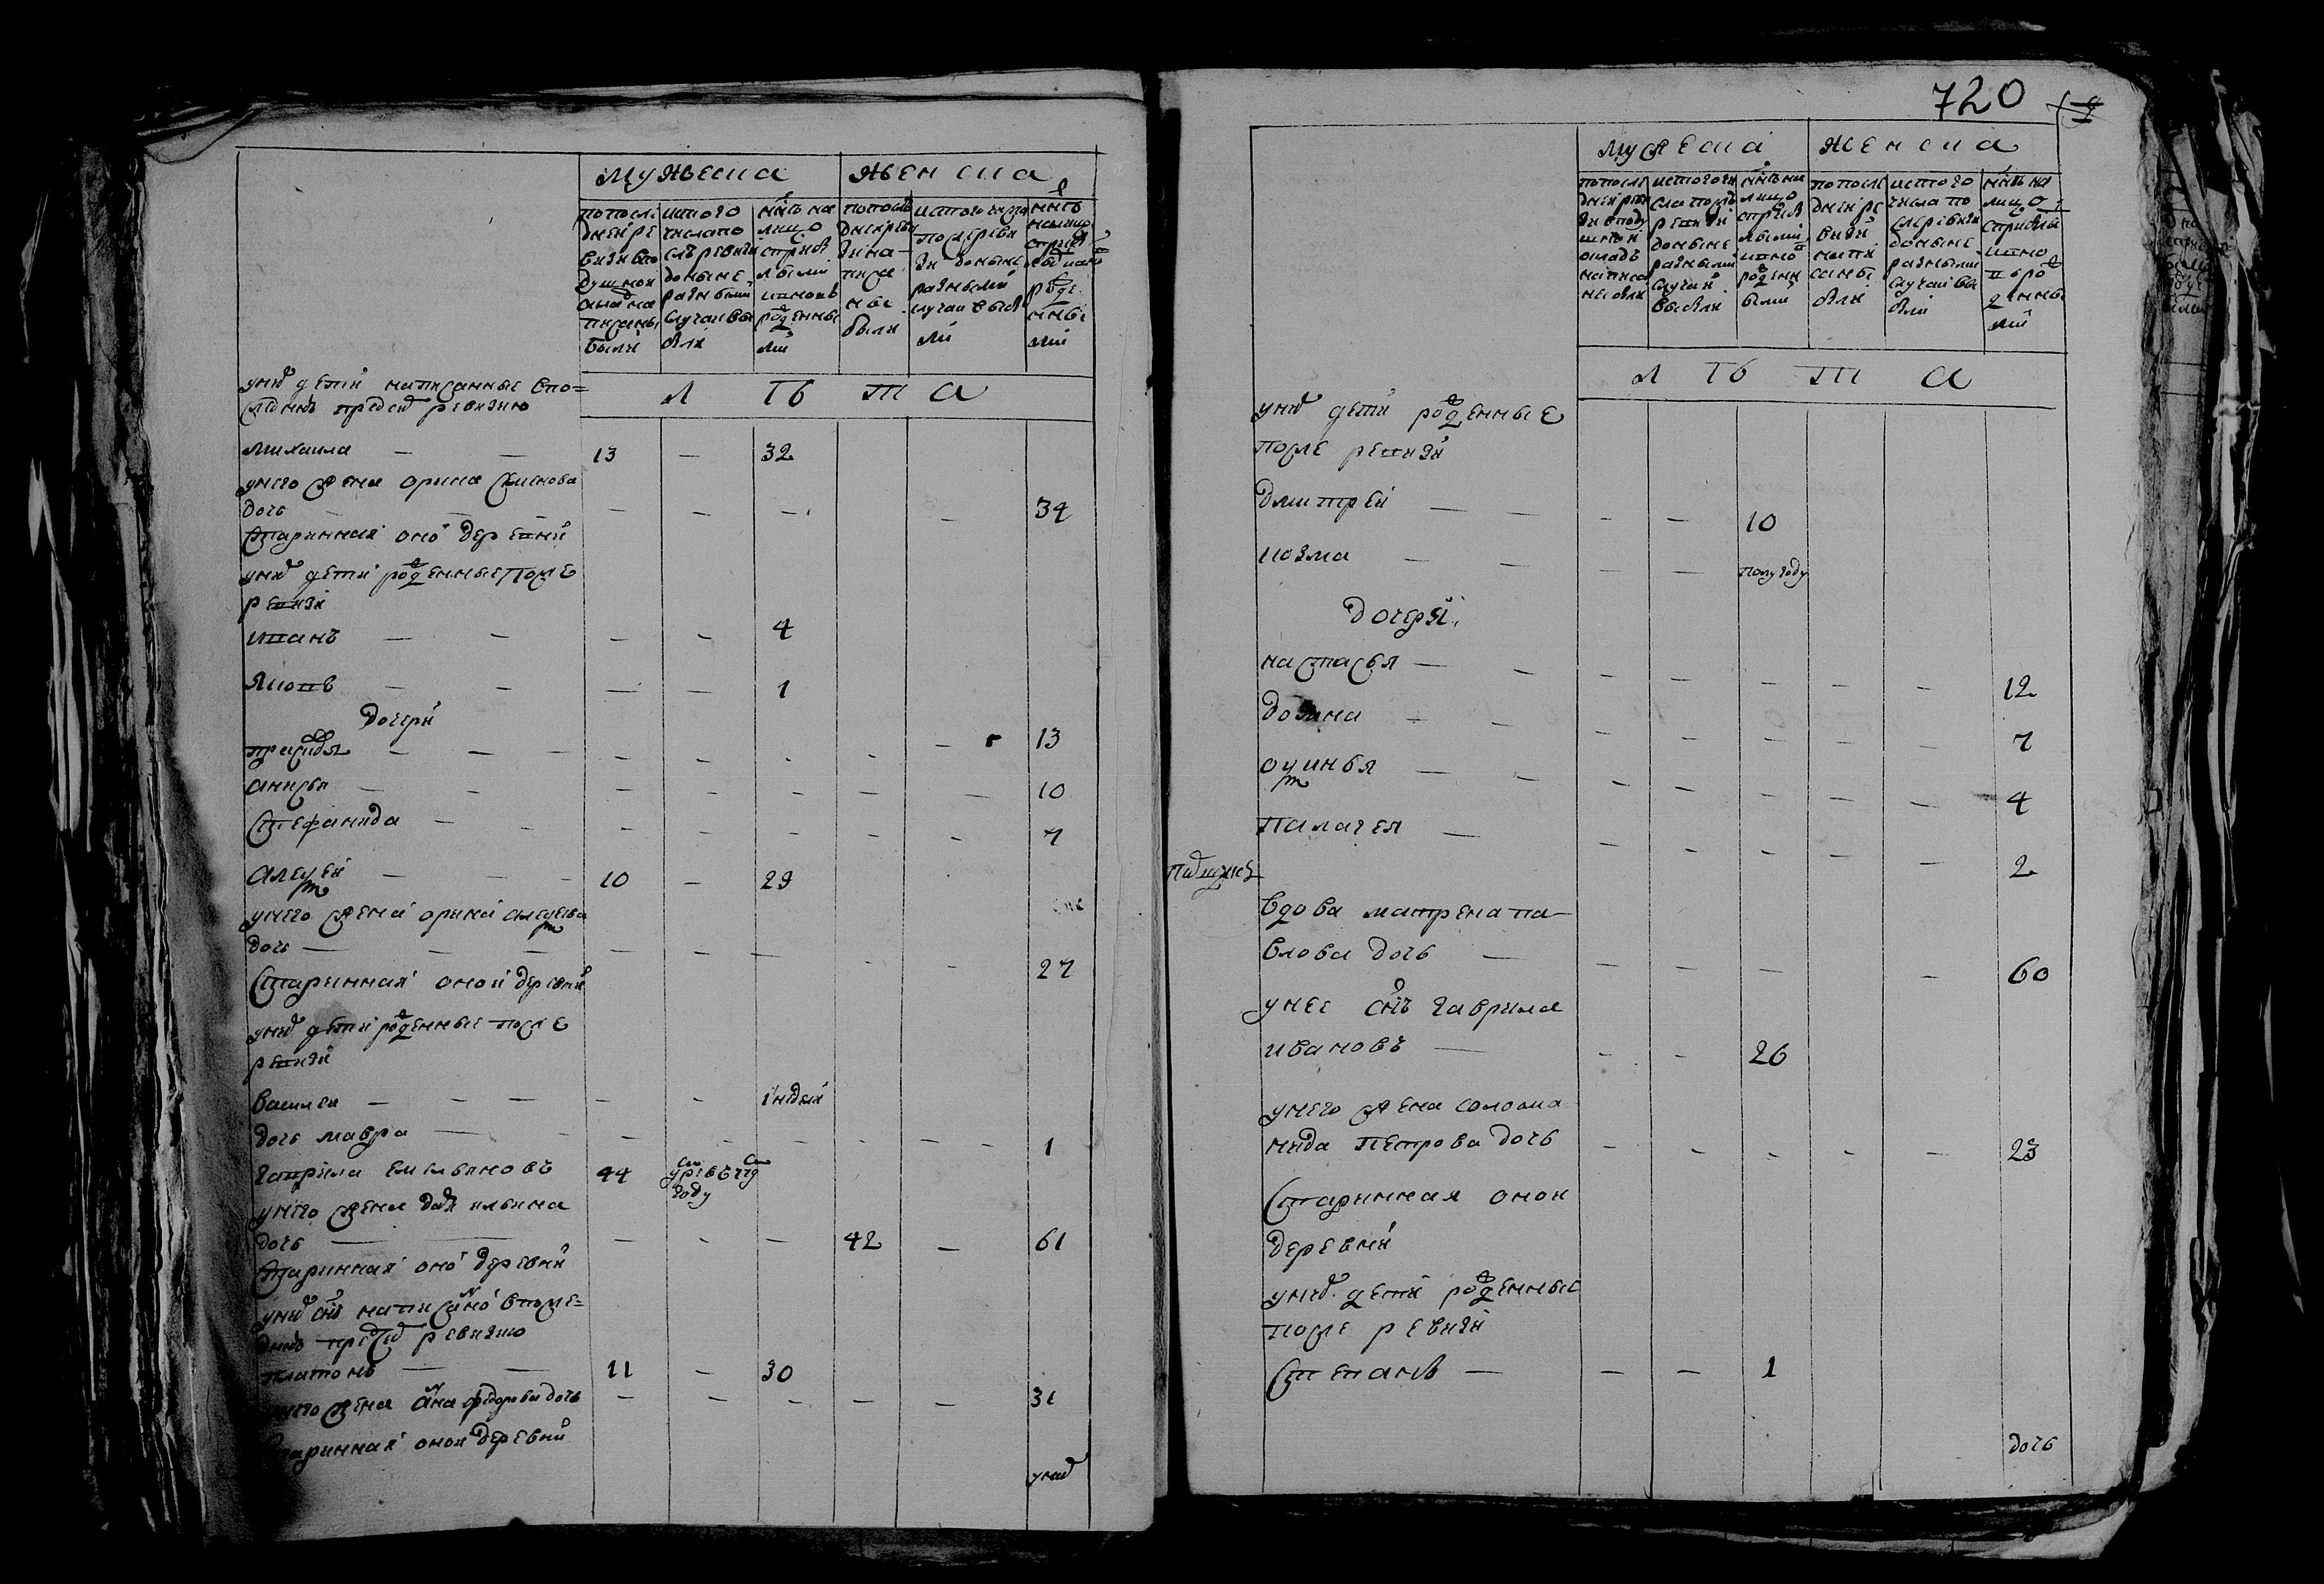 мужеска
женска
попослѣ
дней ре
визи въ по
душной
окладъ на
писаны
были
истого
числа по
слѣ ревизи
до ныне
разными
случаи вы
были
ннѣ на
лицо
с прибы
лыми
и вновь
рожденны
ми
попослѣ
дней реви
зи на
писа
ны
были
исъ того числа
после реви
зи до ныне
разными
случаи выбы
ли
ннѣ
на лицо
с прибы
лыми и вно
рожде
нны
ми
Л ѣ т а
у них дети написанные в по=
следнюю пред сею ревизию
Михаила — — 13 — 32
у него жена орина семенова
дочь — — — — — — — 34
старинная оной деревни
у них дети рожденные после
ревизи
иванъ — — — — 4
яковъ — — — — 1
дочери
прасковья — — — — — — — — 13
анисья — — — — — — — — 10
стефанида — — — — — — — — 7
алексеи — — — 10 — 29
у него жена орина алексеева
дочь — — — — — — — — 27
старинная оной деревни
у них дети рожденные после
ревизи
василеи — — — — — 1 недели
дочь мавра — — — — — — — — 1
гаврила емельяновъ 44
году
у него жена дарья ильина
дочь — — — — — 42 — 61
старинная оной деревни
у них снъ написаной в после=
днюю пред сею ревизию
платонъ — — 11 — 30
у него жена анна федорова дочь — — — — — 31
старинная оной деревни
у них
720
мужеска
женска
попослѣ
дней реви
зи в поду
шной
окладъ
написа
ны были
ис того чи
сла послѣ
ревизи
до ныне
разными
случаи
выбыли
ннѣ на
лицо
с прибы
лыми
и вно
в рожденн
ыми
попослѣ
дней ре
визи
напи
саны
были
ис того
числа по
сле ревизи
до ныне
разными
случаи вы
были
ннѣ на
лицо с
прибылы
и вно
въ рож
денны
ми
Л ѣ т а
у них дети рожденные
после ревизи
дмитреи — — — — 10
козма — — — — полугоду
дочери
настасья — — — — — — — 12
домна — — — — — — — 7
оксинья — — — — — — — 4
палагея — — — — — — 2
вдова матрена па
влова дочь — — — — — 60
у нее снъ гаврила
ивановъ — — — 26
у него жена соломо
нида петрова дочь — — — — — 23
старинная оной
деревни
у них дети рожденные
после ревизи
степанъ — — — 1
дочь